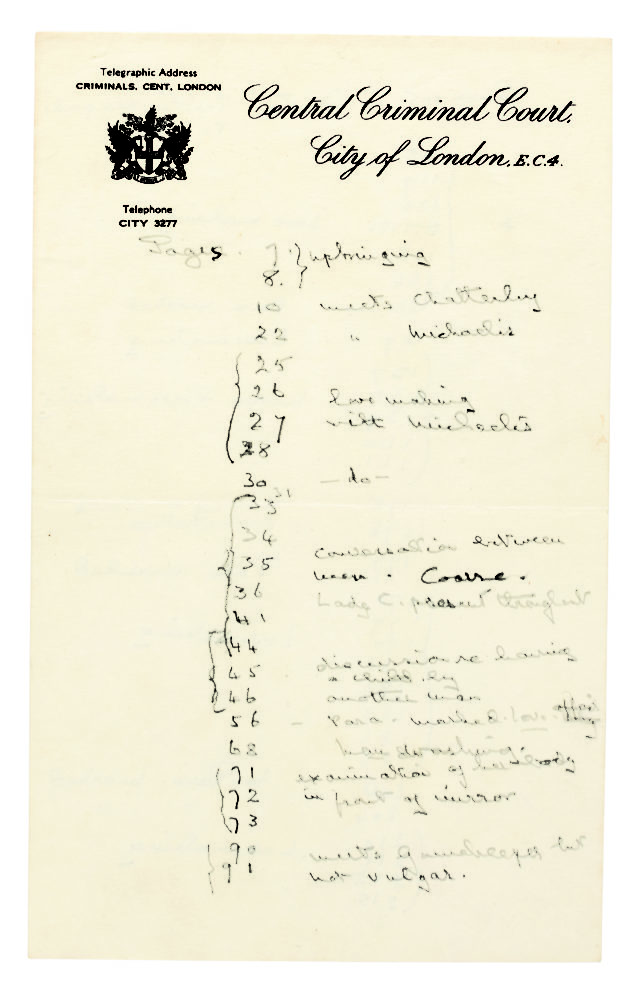 Telegraphic Address
CRIMINALS, CENT, LONDON
Central Criminal Court,
City of London, E.C.4.
Telephone
CITY 3277
Pages. 7 } upbringing
8. }
10 meets Chatterley
22 " Michaelis
25
26 love making
27 with Michaelis
28
30 — do —
33 31
34
35 conversation between
36 men. Coarse.
41 Lady C. present throughout
44
45 discussion re having
46 a child by
another man
56 - Para. marked. love
68 Man washing.
71 examination of her body
72 in front of mirror
73
90 meets Gamekeeper but
91 not vulgar.